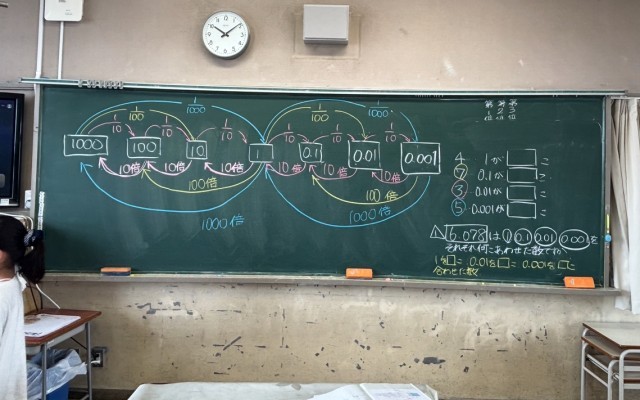 1/1000 1/1000
1/100 1/100 1/100
1/10 1/10 1/10 1/10 1/10 1/10
1000 100 10 0.1 0.01 0.001
10倍 10倍 10倍 10倍 10倍 10倍
100倍 100倍
1000倍 1000倍
4 1が□こ
⑦ 0.1が□こ
③ 0.01が□こ
⑤ 0.001が□こ
6.078は ① 0.1 0.01 0.001を
それぞれ何こあわせた数でか
1が□こ 0.01を□こ 0.001を□こ
合わせた数